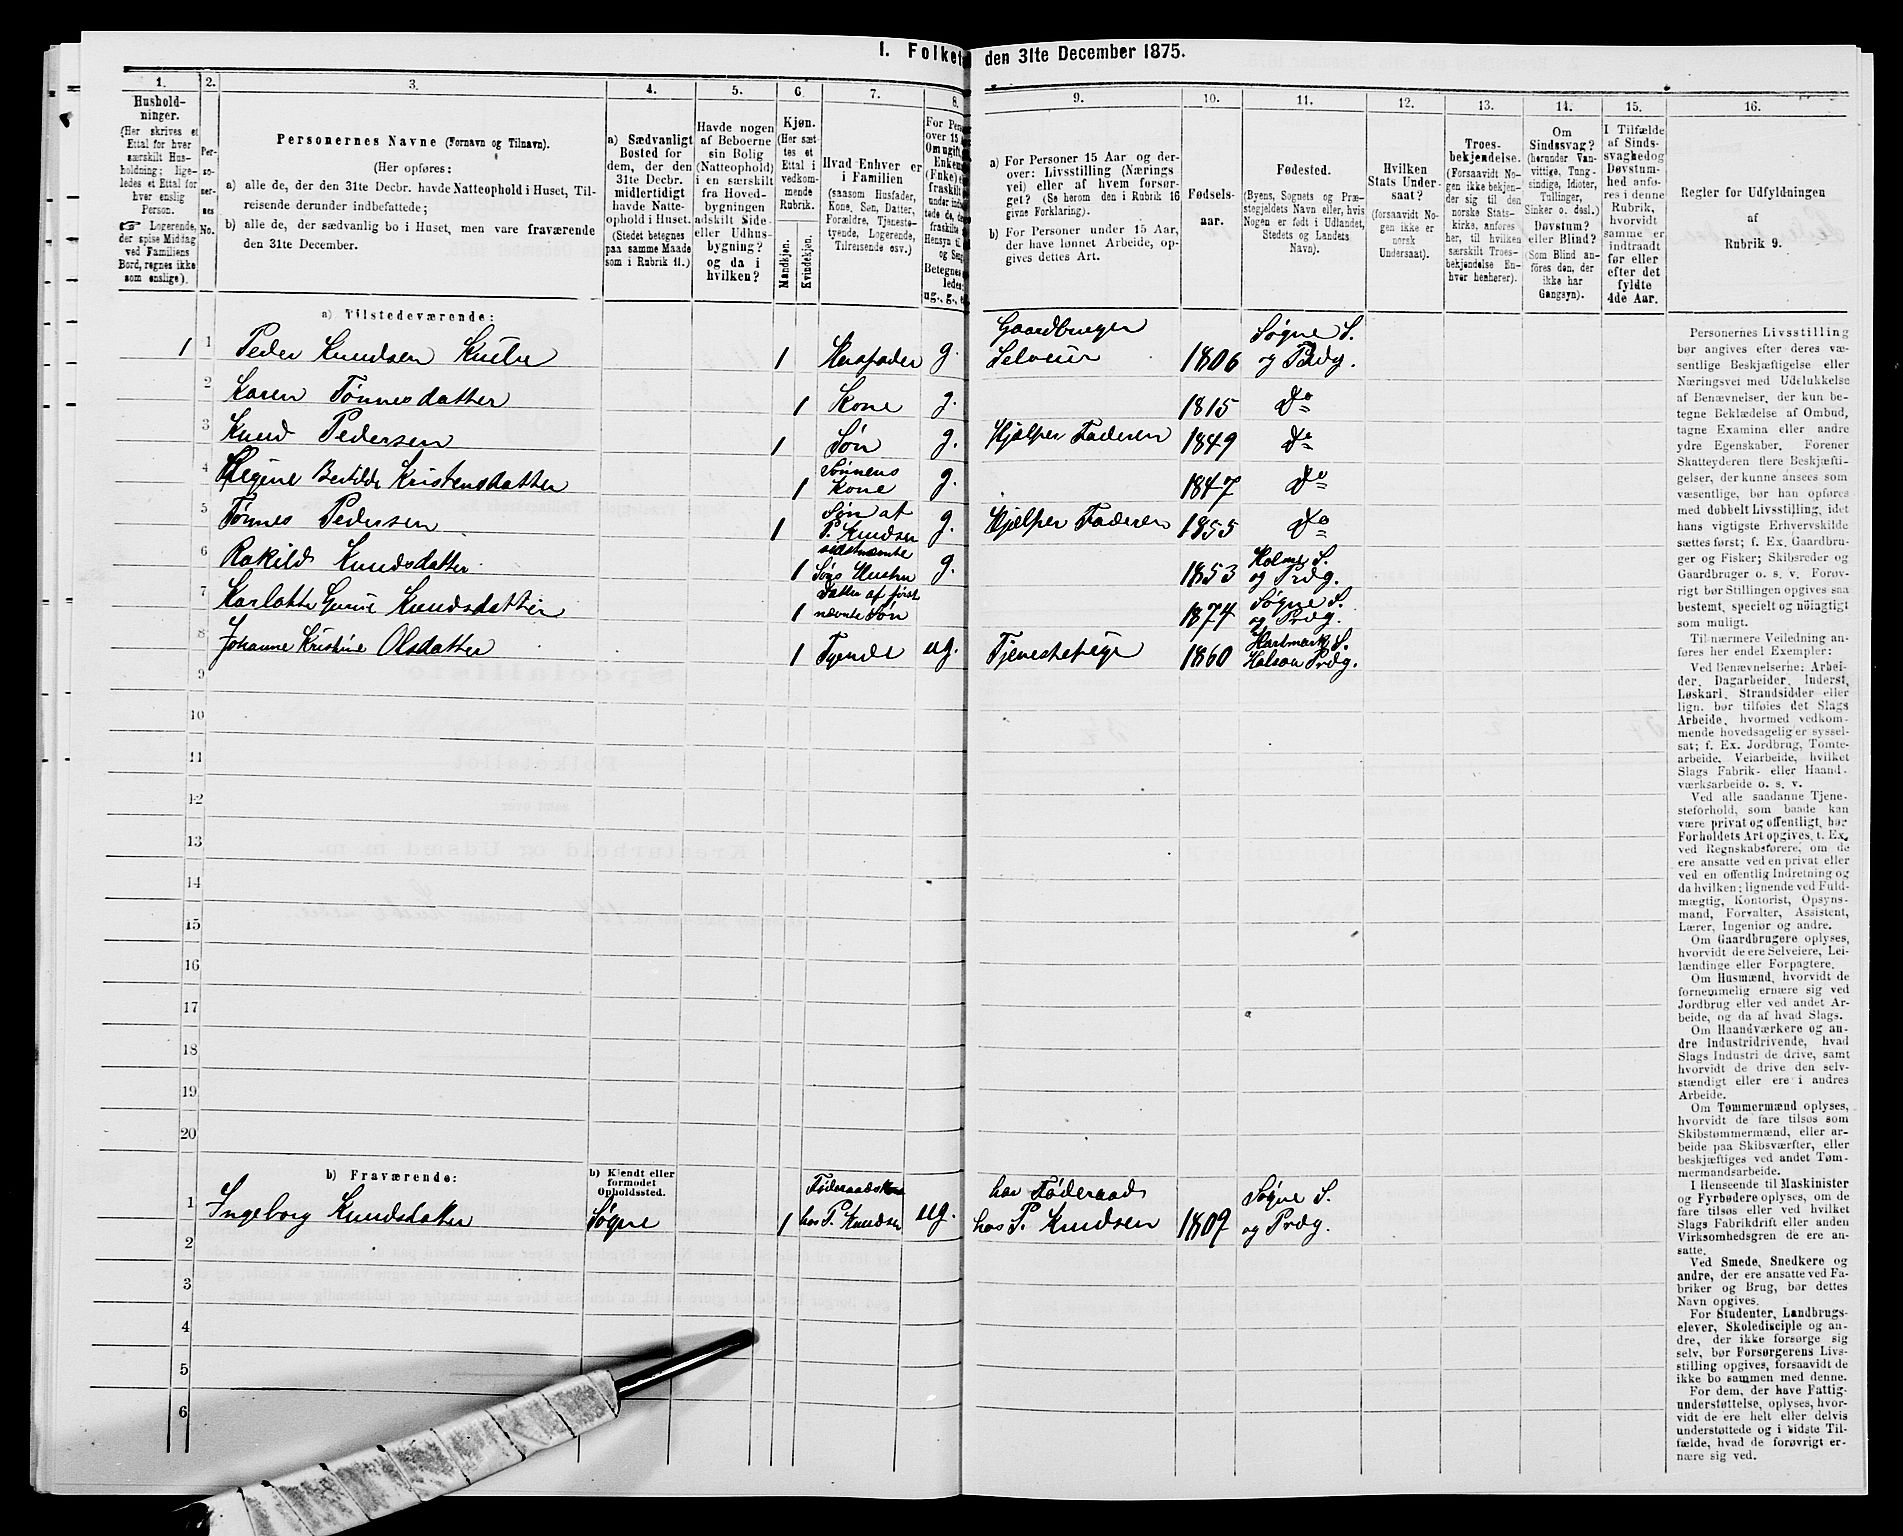 I. Folket
den 31te December 1875.
1.
2.
3.
4.
5.
6.
7.
8.
9.
10.
11.
12.
13.
14.
15.
16.
Hushold-
ninger.
(Her skrives et
Ettal for hver
særskilt Hus-
holdning; lige-
ledes et Ettal for
hver enslig
Person.
☞ Logerende,
der spise Middag
ved Familiens
Bord, regnes ikke
som enslige).
Per-
so-
ner-
nes
No.
Personernes Navne (Fornavn og Tilnavn).
(Her opføres:
a) alle de, der den 31te Decbr. havde Natteophold i Huset, Til-
reisende derunder indbefattede;
b) alle de, der sædvanlig bo i Huset, men vare fraværende
den 31te December.
a) Sædvanligt
Bosted for
dem, der den
31te Decbr.
midlertidigt
havde Natte-
ophold i Huset.
(Stedet betegnes
paa samme Maade
som i Rubrik 11.)
Havde nogen
af Beboerne
sin Bolig
(Natteophold)
i en særskilt
fra Hoved-
bygningen
adskilt Side-
eller Udhus-
bygning?
og da i
hvilken?
Kjøn.
(Her sæt-
tes et
Ettal i
vedkom-
mende
Rubrik.
Mandkjøn.
Kvindekjøn.
Hvad Enhver er
i Familien
(saasom Husfader,
Kone, Søn, Datter,
Forældre, Tjeneste-
tyende, Logerende,
Tilreisende osv.)
For Pers
over 15
Om ugift
Enkem
(Fnke) e
fraskilt
under indb
tede de, de
fraskilte
Hensyn til
og Sen
Betegnes
ledes:
ug., g., e
a) For Personer 15 Aar og der-
over: Livsstilling (Nærings
vei) eller af hvem forsør-
get? (Se herom den i Rubrik 16
givne Forklaring).
b) For Personer under 15 Aar,
der have lønnet Arbeide, op-
gives dettes Art.
Fødsels-
aar.
Fødested.
(Byens, Sognets og Præ-
stegjeldets Navn eller, hvis
Nogen er født i Udlandet,
Stedets og Landets
Navn).
Hvilken
Stats Under-
saat?
(forsaavidt No-
gen ikke er
norsk
Undersaat).
Troes-
bekjendelse.
(Forsaavidt No-
gen ikke bekjen-
der sig til den
norske Stats-
kirke, anføres
her, til hvilken
særskilt Troes-
bekjendelse En-
hver henhører).
Om
Sindssvag?
(herunder Van-
vittige, Tung-
sindige, Idioter,
Tullinger,
Sinker o. desl.)
Døvstum?
eller Blind?
(Som Blind an-
føres den, der
ikke har
Gangsyn).
I Tilfælde
af Sinds-
svaghedog
Døvstum-
hed anfø-
res i denne
Rubrik,
hvorvidt
samme er
indtraadt
før eller
efter det
fyldte
4de Aar.
Regler for Udfyldningen
af
Rubrik 9.
a) Tilstedeværende:
1 1 Peder Knudsen 1 Husfader g. Gaardbruger Selveier 1806 Søgne S. og Prdg.
2 Karen Tønnesdatter 1 Kone g. 1815 Do
3 Knud Pedersen 1 Søn g. Hjælper Faderen 1849 Do
4 Regine Bertilde Kristensdatter 1 Sønnens Kone g. 1847 Do
5 Tønnes Pedersen 1 Søn af P. Knudsen g. Hjælper Faderen 1855 Do
6 Rakild Knudsdatter 1 sidstnævnte Søns Hustru g. 1853 Holme S. og Prdg.
7 Karlotte Gurine Knudsdatter 1 Datter af først nævnte Søn 1874 Søgne S. og Prdg.
8 Johanne Kristine Olsdatter 1 Tyende ug. Tjenestepige 1860 Hartmark S. Halsaa Prdg.
9
10
11
12
13
14
15
16
17
18
19
20
b) Fraværende:
b) Kjendt eller
formodet
Opholdssted.
1 Ingeborg Knudsdatter Søgne 1 Føderaadskone hos P. Knudsen ug. har Føderaad hos P. Knudsen 1809 Søgne S. og Prdg.
2
3
4
5
6
Personernes Livsstilling
bør angives efter deres væ-
sentlige Beskjæftigelse eller
Næringsvei med Udelukkelse
af Benævnelser, der kun be-
tegne Beklædelse af Ombud,
tagne Examina eller andre
ydre Egenskaber. Forener
Skatteyderen flere Beskjæfti-
gelser, der kunne ansees som
væsentlige, bør han opføres
med dobbelt Livsstilling, idet
hans vigtigste Erhvervskilde
sættes først; f. Ex. Gaardbru-
ger og Fisker; Skibsreder og
Gaardbruger o. s. v. Forøv-
rigt bør Stillingen opgives saa
bestemt, specielt og nøiagtigt
som muligt.
Til nærmere Veiledning an-
føres her endel Exempler:
Ved Benævnelserne: Arbei-
der, Dagarbeider, Inderst,
Løskarl, Strandsidder eller
lign. bør tilføies det Slags
Arbeide, hvormed vedkom-
mende hovedsagelig er syssel-
sat; f. Ex. Jordbrug, Tomte-
arbeide, Veiarbeide, hvilket
Slags Fabrik- eller Haand-
værksarbeide o. s. v.
Ved alle saadanne Tjene-
steforhold, som baade kan
være privat og offentligt, bør
Forholdets Art opgives, t. Ex.
ved Regnskabsførere, om de
ere ansatte ved en privat eller
ved en offentlig Indretning og
da hvilken; lignende ved Fuld-
mægtig, Kontorist, Opsyns-
mand, Forvalter, Assistent,
Lærer, Ingeniør og andre.
Om Gaardbrugere oplyses,
hvorvidt de ere Selveiere, Lei-
lændinge eller Forpagtere.
Om Husmænd, hvorvidt de
fornemmelig ernære sig ved
Jordbrug eller ved andet Ar-
beide, og da af hvad Slags.
Om Haandværkere og an-
dre Industridrivende, hvad
Slags Industri de drive, samt
hvorvidt de drive den selv-
stændigt eller ere i andres
Arbeide.
Om Tømmermænd oplyses,
hvorvidt de fare tilsøs som
Skibstømmermænd, eller ar-
beide paa Skibsværfter, eller
beskjæftiges ved andet Tøm-
mermandsarbeide.
I Henseende til Maskinister
og Fyrbødere oplyses, om de
fare tilsøs eller ved hvilket
Slags Fabrikdrift eller anden
Virksomhedsgren de ere an-
satte.
Ved Smede, Snedkere og
andre, der ere ansatte ved Fa-
briker og Brug, bør dettes
Navn opgives.
For Studenter, Landbrugs-
elever, Skoledisciple og an-
dre, der ikke forsørge sig
selv, bør Forsørgerens Livs-
stilling opgives, forsaavidt de
ikke bo sammen med denne.
For dem, der have Fattig-
understøttelse, oplyses, hvor-
vidt de ere helt eller delvis
understøttede og i sidste Til-
fælde, hvad de forøvrigt er-
nære sig ved.